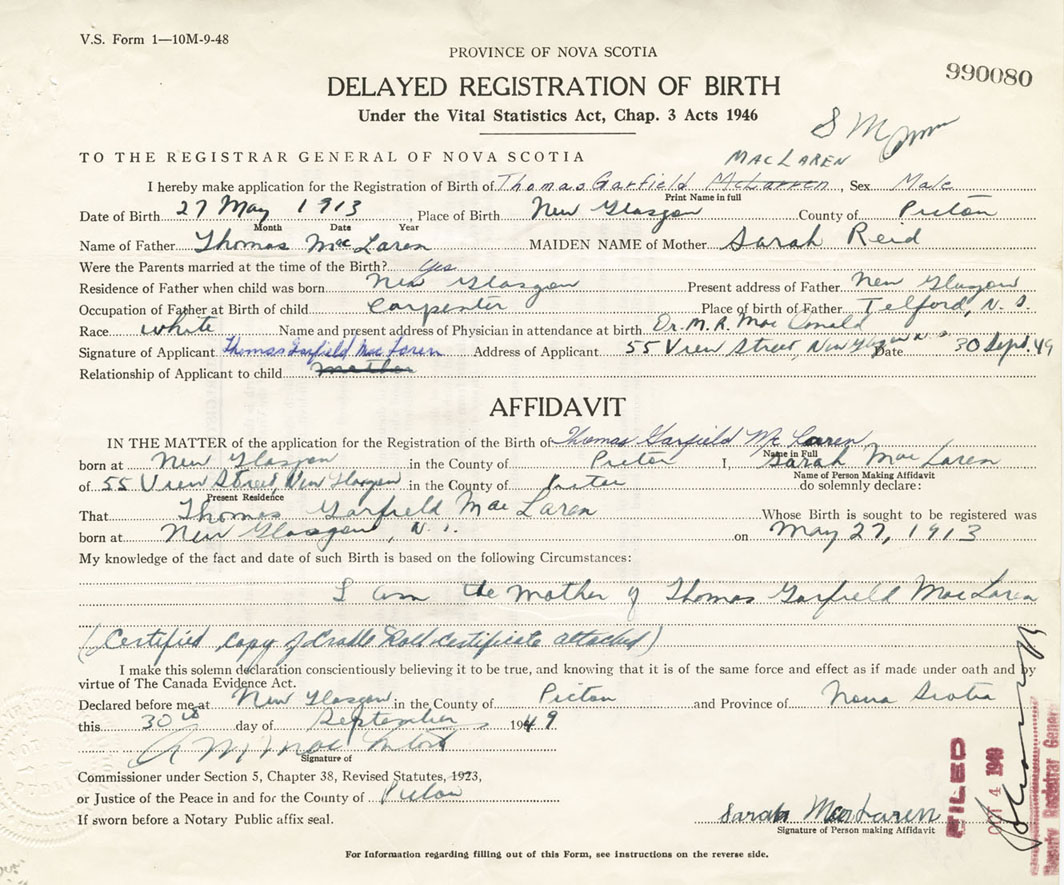 V.S. Form 1—10M-9-48
PROVINCE OF NOVA SCOTIA
990080
DELAYED REGISTRATION OF BIRTH
Under the Vital Statistics Act, Chap. 3 Acts 1946
TO THE REGISTRAR GENERAL OF NOVA SCOTIA
MACLAREN
I hereby make application for the Registration of Birth of Thomas Garfield McLarren, Sex Male
Print Name in full
Date of Birth 27 May 1913, Place of Birth New Glasgow County of Pictou
Month Date Year
Name of Father Thomas MacLaren MAIDEN NAME of Mother Sarah Reid
Were the Parents married at the time of the Birth? Yes
Residence of Father when child was born New Glasgow Present address of Father New Glasgow
Occupation of Father at Birth of child Carpenter Place of birth of Father Telford, N.S.
Race white Name and present address of Physician in attendance at birth Dr. M. R. MacDonald
Signature of Applicant Thomas Garfield MacLaren Address of Applicant 55 View Street, New Glasgow N.S. Date 30 Sept. 49
Relationship of Applicant to child mother
AFFIDAVIT
IN THE MATTER of the application for the Registration of the Birth of Thomas Garfield McLaren
Name in Full
born at New Glasgow in the County of Pictou I Sarah MacLaren
Name of Person Making Affidavit
of 55 View Street, New Glasgow in the County of Pictou do solemnly declare:
Present Residence
That Thomas Garfield MacLaren Whose Birth is sought to be registered was
born at New Glasgow, N.S. on May 27, 1913
My knowledge of the fact and date of such Birth is based on the following Circumstances:
I am the mother of Thomas Garfield MacLaren
(Certified copy of Cradle Roll certificate attached)
I make this solemn declaration conscientiously believing it to be true, and knowing that it is of the same force and effect as if made under oath and by
virtue of The Canada Evidence Act.
Declared before me at New Glasgow in the County of Pictou and Province of Nova Scotia
this 30th day of September 1949
Signature of
Commissioner under Section 5, Chapter 38, Revised Statutes, 1923,
or Justice of the Peace in and for the County of Pictou
If sworn before a Notary Public affix seal.
Sarah MacLaren
Signature of Person making Affidavit
FILED
OCT 4 1949
Deputy Registrar General
For Information regarding filling out of this Form, see instructions on the reverse side.